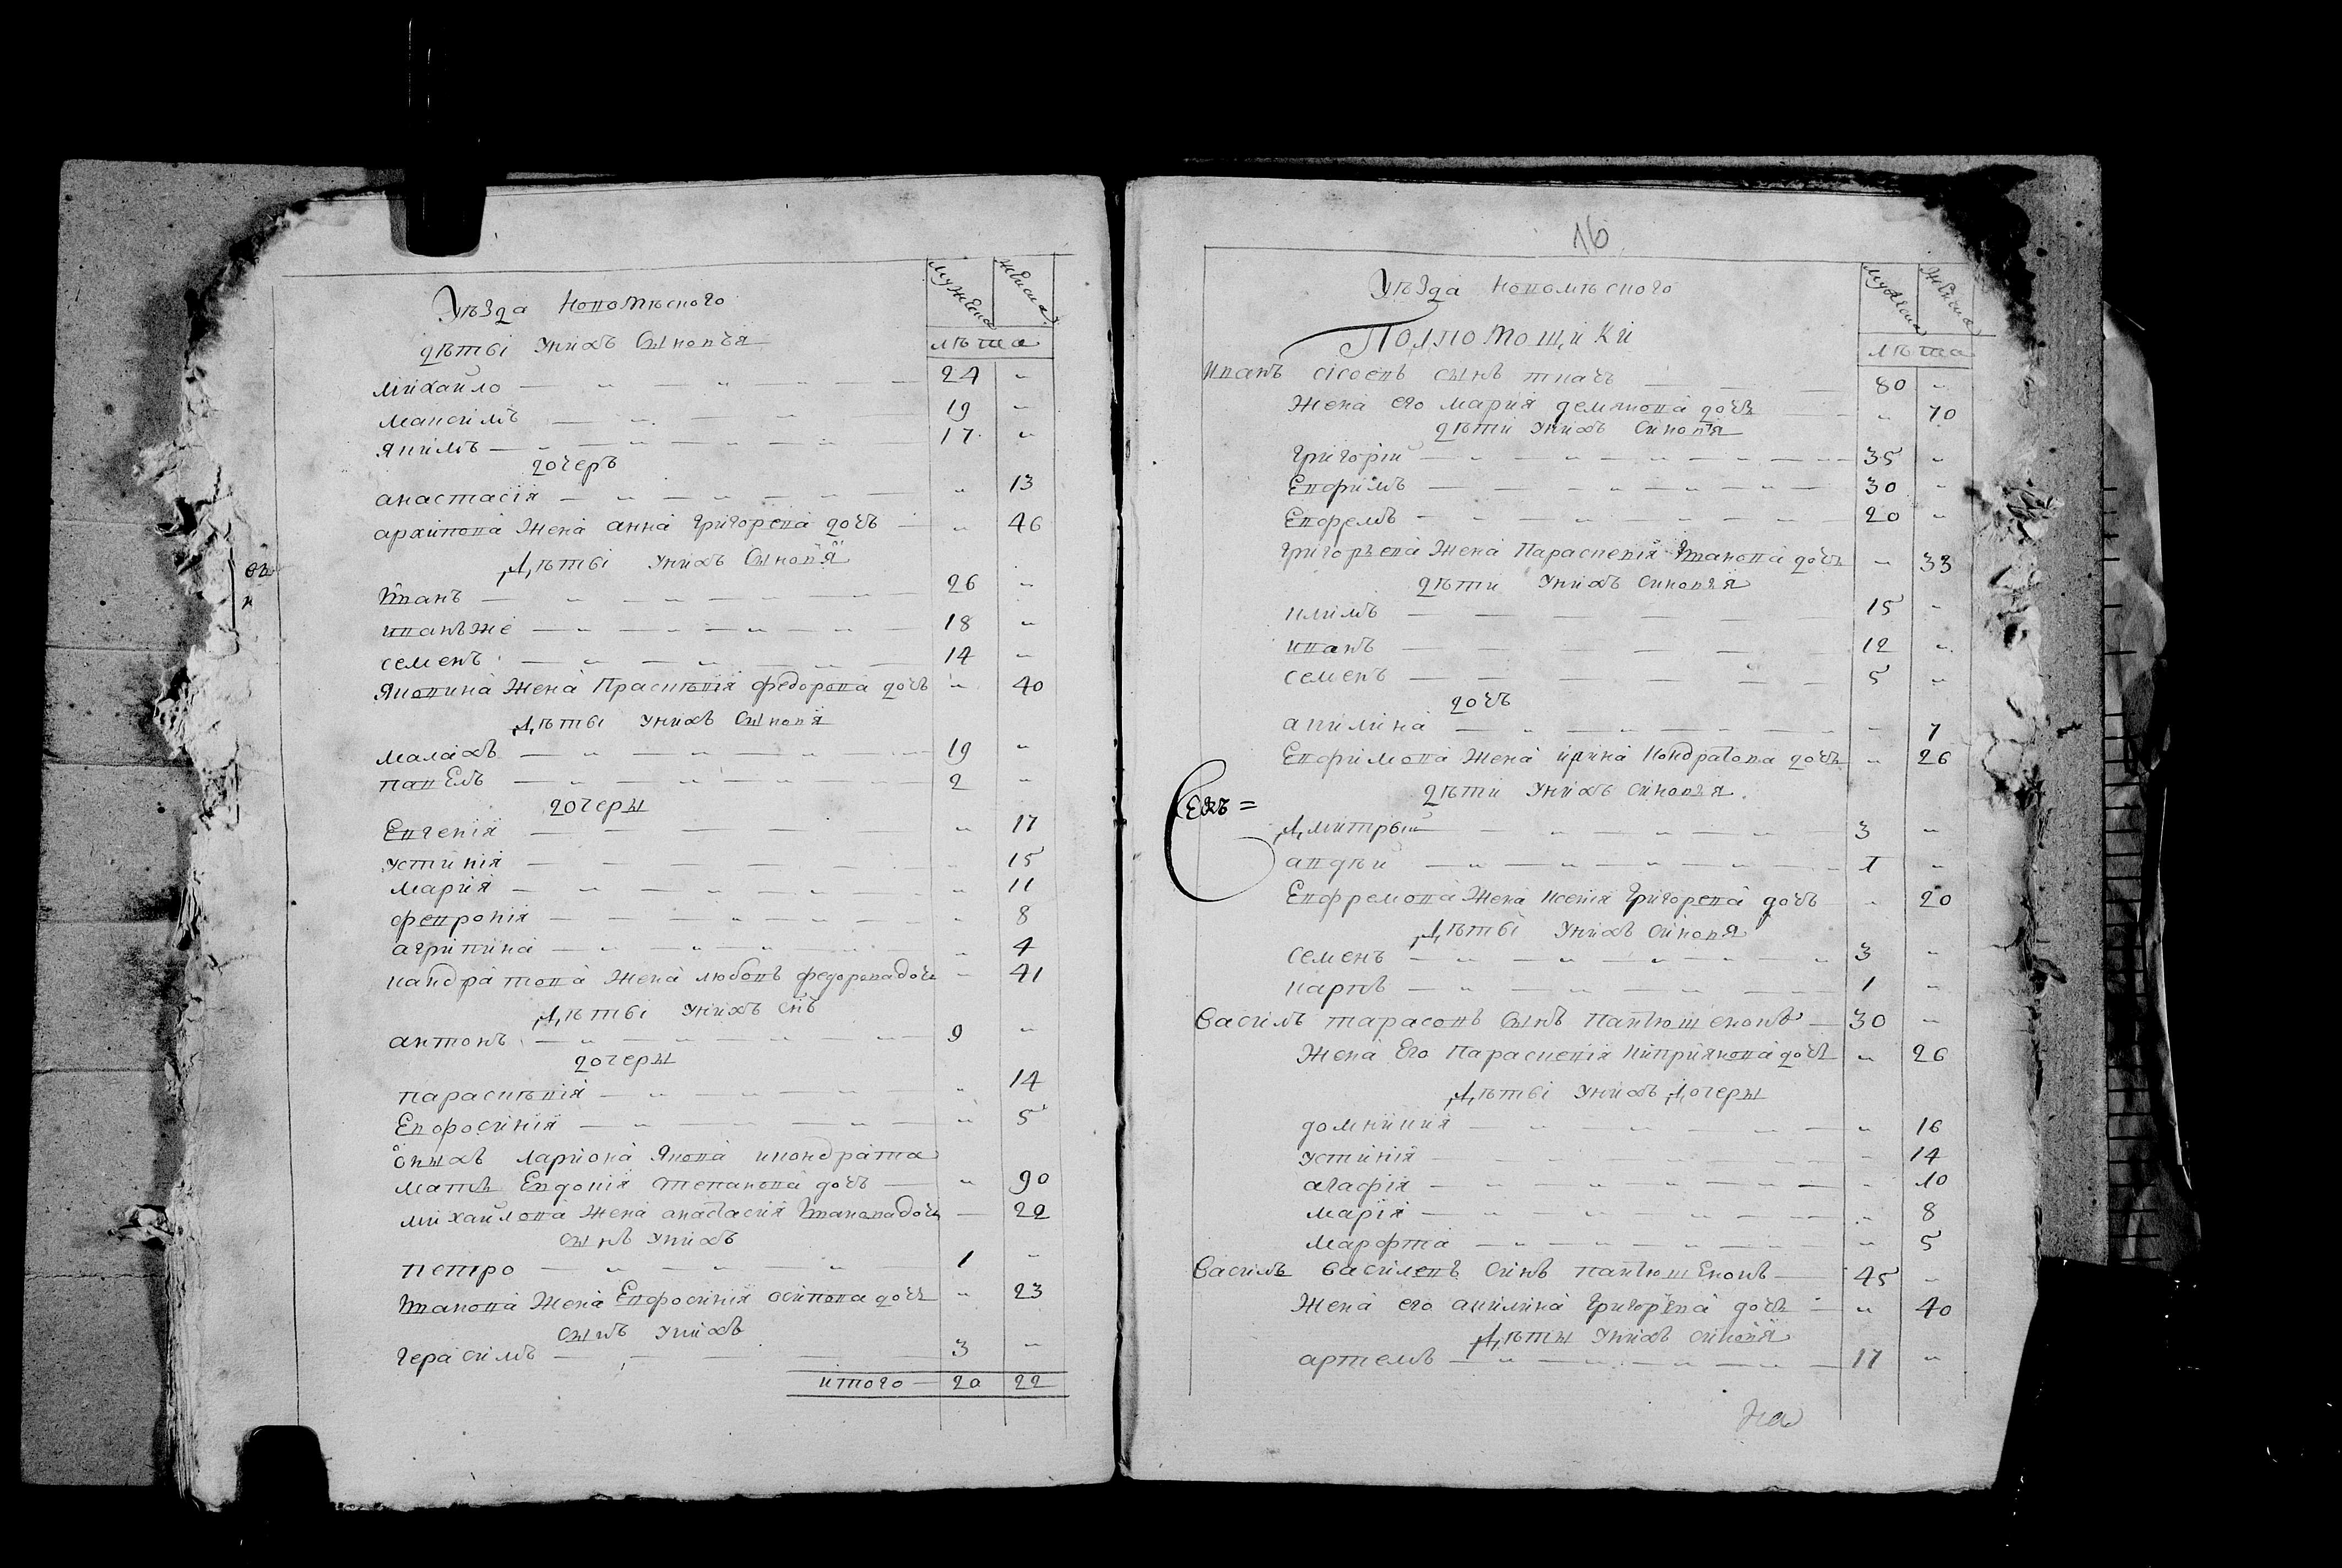 Уѣзда Новомѣского
мужеска женска
лѣта
дѣтьі унихъ Сыновъя
михайло 24 "
максимъ 19 "
якимъ 17 "
дочеръ
анастасія " 13
архипова жена анна григорева дочъ " 46
Дѣтьі унихъ Сыновъя
Иванъ 26 "
иванъже 18 "
семенъ 14 "
Яковина жена Праскѣвія федорова дочъ " 40
Дѣтьі унихъ Сыновя
малахъ 19 "
павелъ 2 "
дочеры
Евгенія " 17
устинія " 15
мария " 11
февронія " 8
агрипина " 4
кандратова жена любовъ федоровадочъ " 41
Дѣтьі унихъ снъ
антонъ 9 "
дочеры
параскѣвія " 14
Евфосинія " 5
оныхъ лариона Якова икондрата
мать Евдокія степанова дочъ " 90
михайлова жена анастасия Ивановадочъ 22
сынъ унихъ
петро 1 "
Иванова жена Евфосинія осипова дочъ " 23
сынъ унихъ
герасимъ 3 "
итого 20 22
16
Уѣзда Новомѣского
мужеска женска
лѣта
Подпомощики
Иванъ сісоевъ сынъ ткачъ 80 "
жена его мария демянова дочъ " 70
дѣти унихъ синовъя
григорій 35 "
Евфимъ 30 "
Евфремъ 20 "
григоръева жена Параскевія Иванова дочъ " 33
дѣти унихъ синовъя
климъ 15 "
иванъ 12 "
семенъ 5 "
дочъ
акилина " 7
Евфимова жена ирина кондратова дочъ " 26
дѣти унихъ синовъя
Дмитрый 3 "
авдѣй 1 "
Евфремова жена ксенія григорева дочъ " 20
Дѣтьі унихъ синовя
семенъ 3 "
карпъ 1 "
Василъ тарасовъ сынъ Панъюшенокъ 30 "
жена Его Параскевія киприянова дочъ " 26
Дѣтьі унихъ Дочеры
домникия " 16
устинія " 14
агафія " 10
марія " 8
марофта " 5
Василъ василевъ синъ панъюшЕнокъ 45 "
жена его акилина григоръева дочъ " 40
Дѣты унихъ синовя
артемъ 17 "